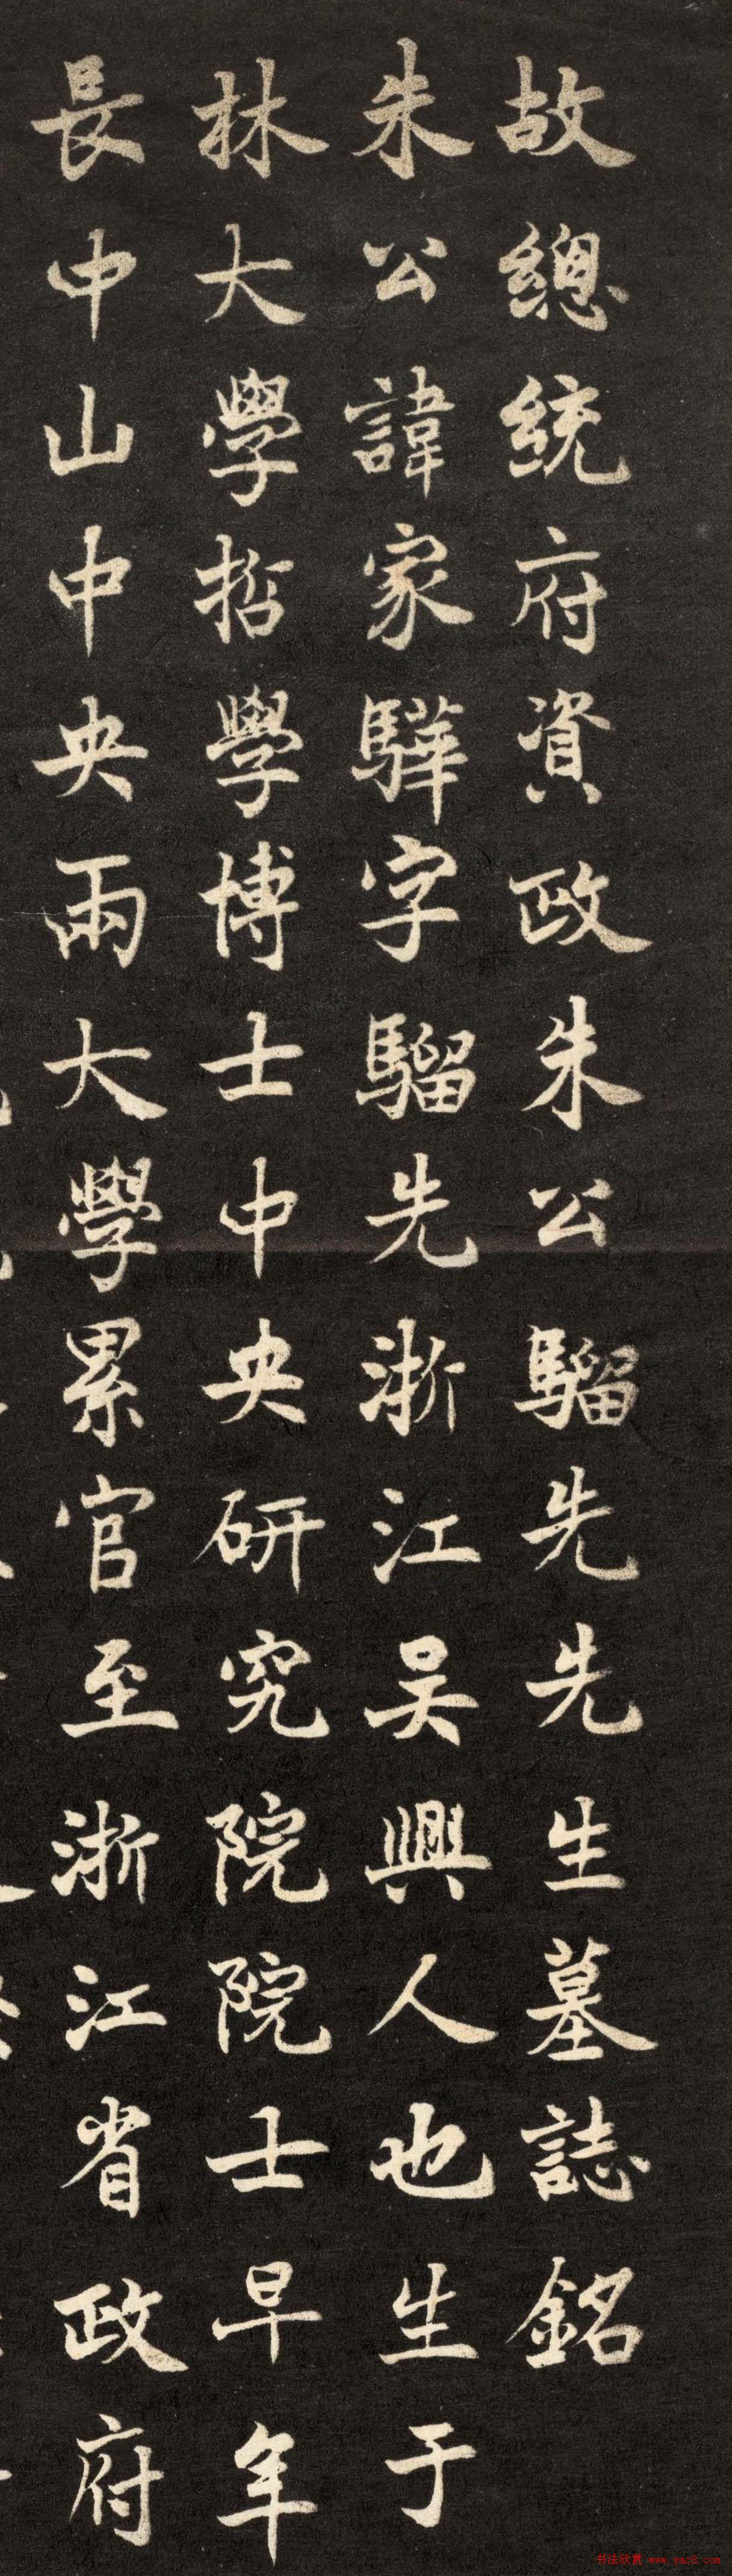 故總統府資政朱公騮先先生墓誌銘
朱公諱家驊字騮先浙江吴興人也生于
林大學哲學博士中央研究院院士早年
長中山中央兩大學累官至浙江省政府
书法欣赏 www.yac8.com